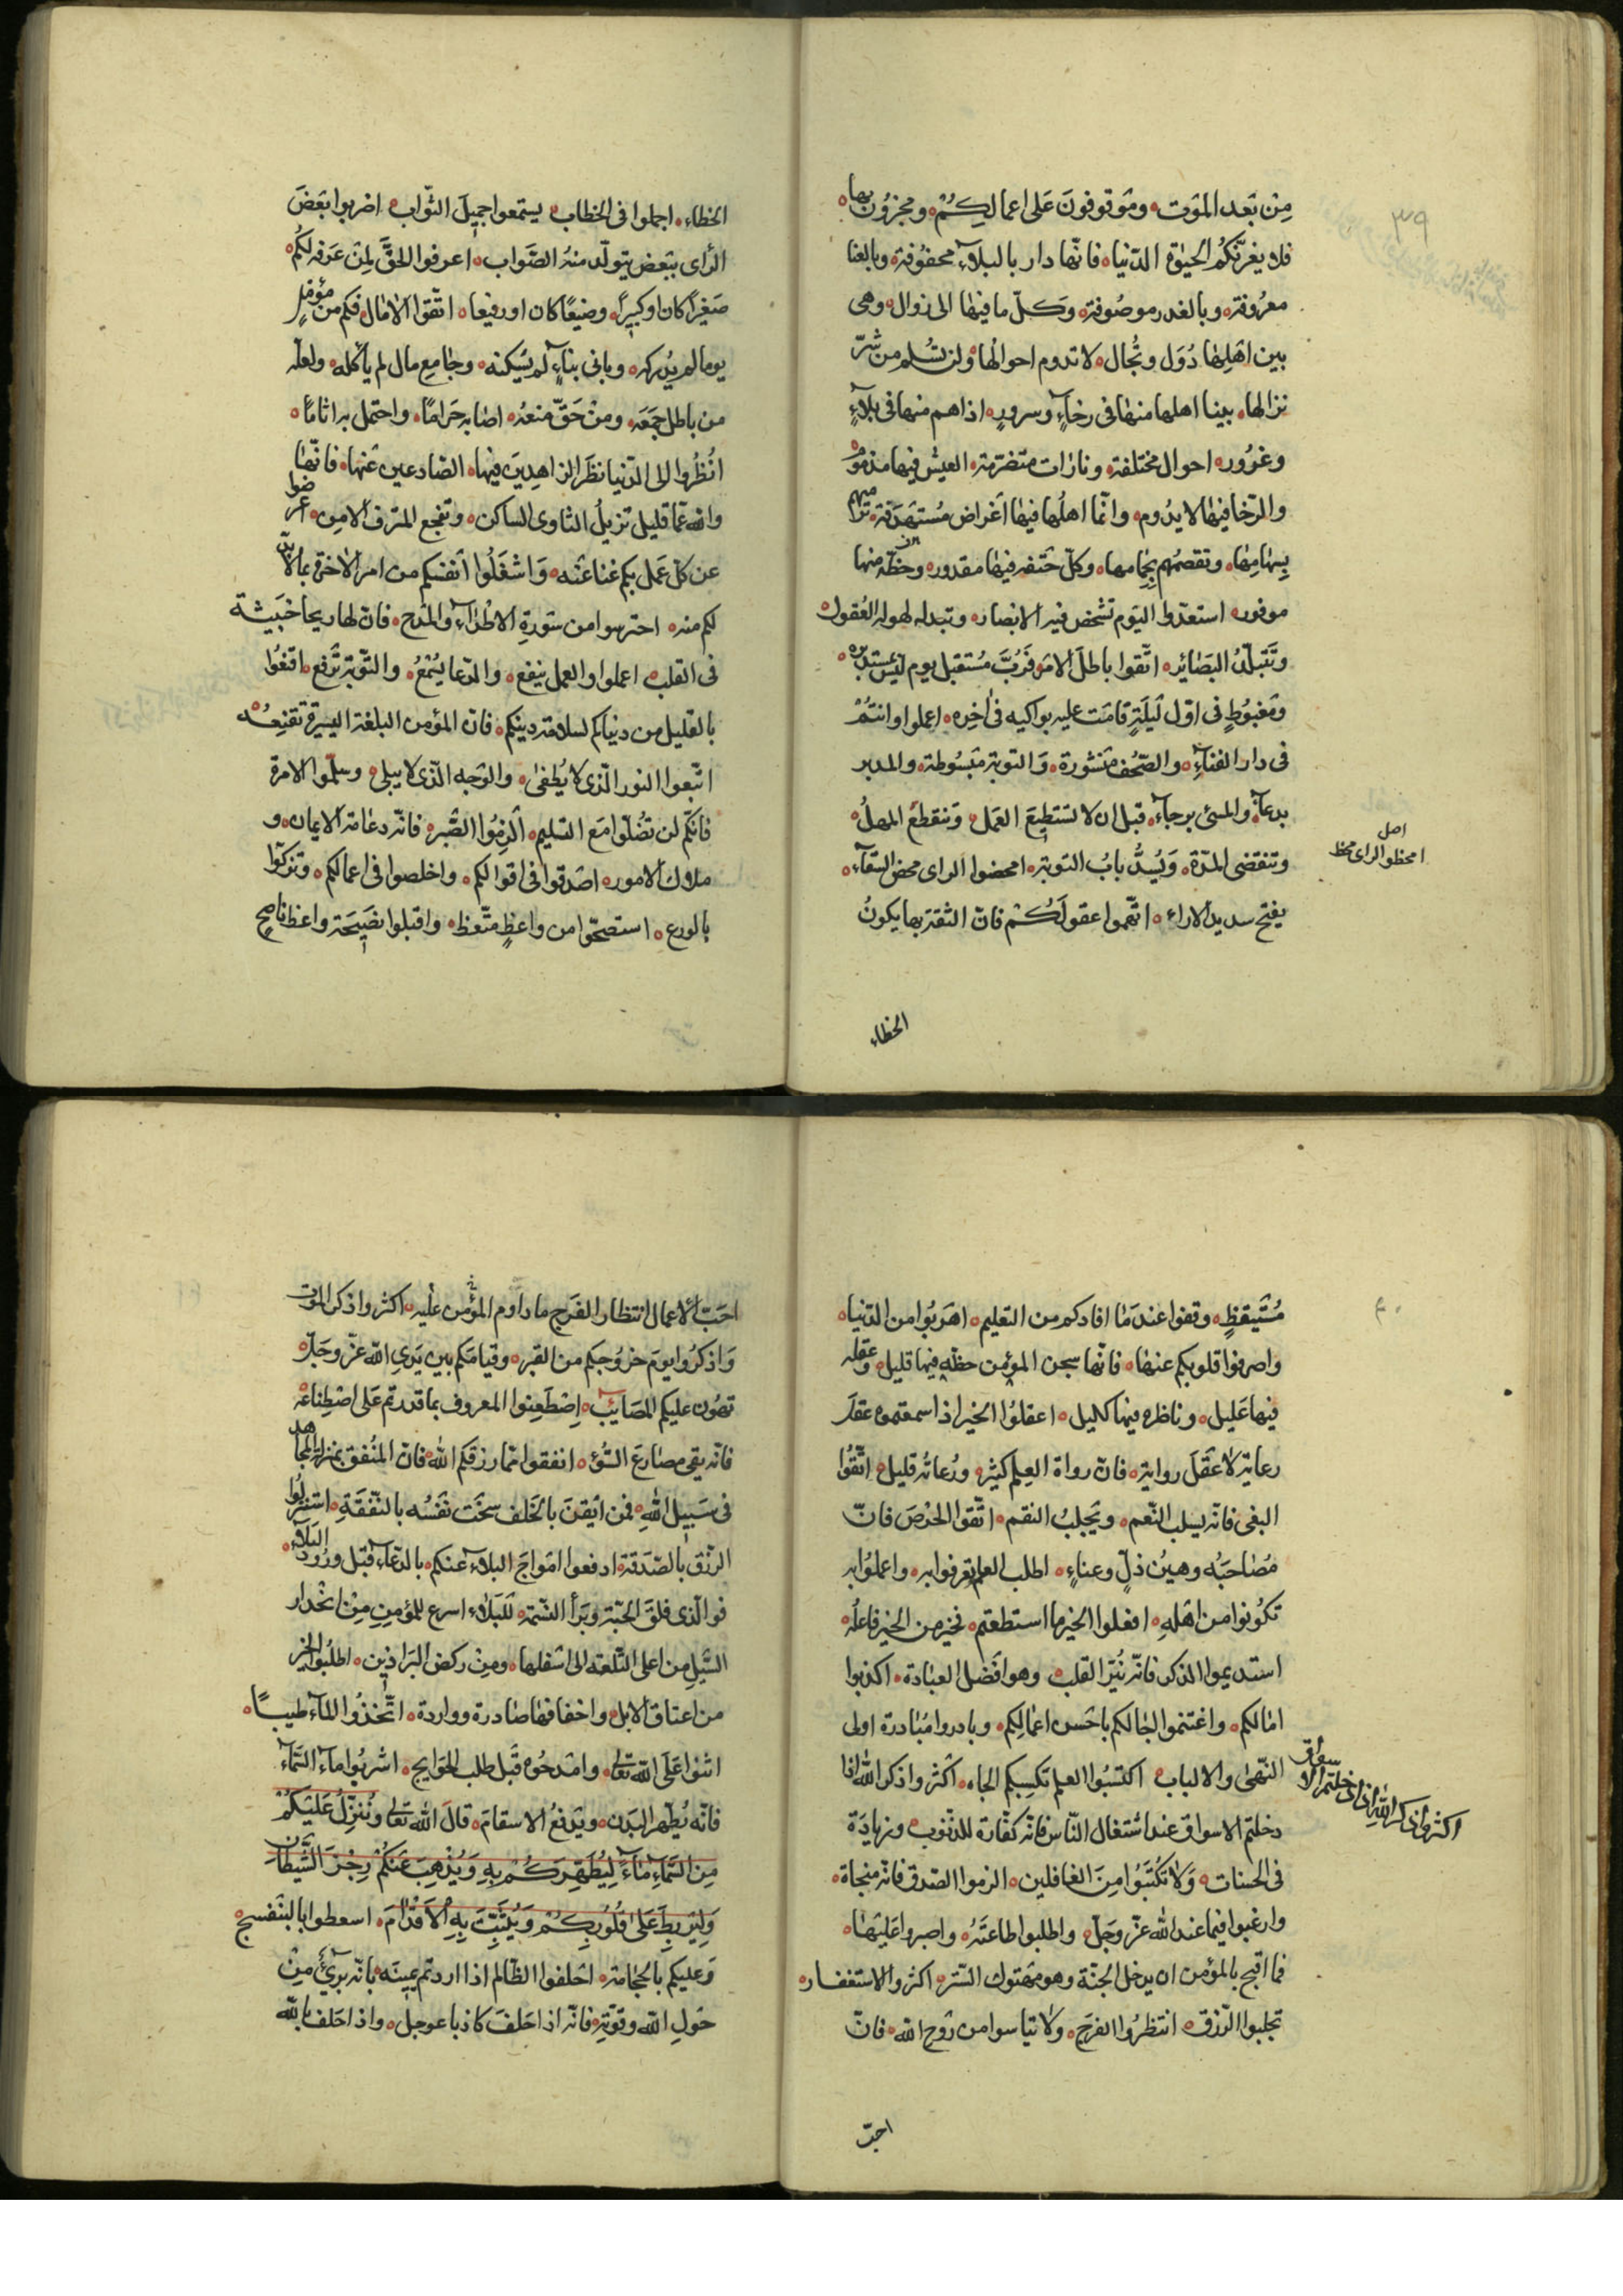 ٣٩
مِنْ بَعد المَوت ومَوقوفونَ عَلى اعمالِكُمْ ومجزوُن بها
فلا يغرّنّكُم الحيٰوة الدّنيا فانّها دار بالبلاءِ محفوُفة وبالعنا
معرُوفة وبالغدر موصُوفة وَكلّ ما فيهٰا الى زوال وهى
بين اهلِهٰا دُوَل وسِجٰال لا تدوم احوالُها ولن تسْلم من شرّ
نزالها بينا اهلها منهٰا فى رخاءٍ وسرورٍ اذا هم منها فى بلاءٍ
وغرُور احوال مختلفة وتارات متصرّمة العيش فيها مذمُوم
والرّخا فيهٰا لا يدُوم وانّما اهلُها فيهٰا اَغراض مُستهدَفة ترميهم
بسِهٰامِهٰا وتقصمُهم بِحِمامها وكلّ حَتفه فيهٰا مقدور وحظّه منها
موفور استعدّوا اليَوم تشخص فيه الابصار وتبدله لهوله العُقول
وتَتَبلّدُ البَصٰائر اتّقوا باطلَ الامَل فَرُبَّ مُستقبل يوم ليسَ بمستدبره
ومَغبُوطٍ فى اوّل لَيلَةٍ قٰامَت عليه بواكيه فى اٰخِره اعملوا وانتمْ
فى دار الفنٰاءِ والصّحُف مَنشُورة وَالتوبة مَبسُوطة والمدبر
يدعٰا والمسئ يرجاء قبل ان لا تستطيعَ العمَل وَتنقطعُ المهلُ
وتنقضى المدّة وَيُسدُّ بابُ التوبة امحضوا الراى محض السّقاء
اصل
امخظو الراى مخظ
يفتح سديد الاراء اتّهموا عقولَكُمْ فانّ الثقة بها يكونُ
الخطاء
الخطاء اجملوا فى الخطاب يستمعوا جميلَ الثّواب اضربوا بَعْضَ
الرأى ببَعْضٍ يتولّد منهُ الصّواب اعرفوا الحقَّ لِمَن عَرفه لكُم
صَغيرًا كان او كبيرًا وضيعًا كان او رفيعا اتّقوا الاٰمٰال فكم من مؤمّلٍ
يوما لم يُدركه وبانى بناءٍ لم يَسكنه وجٰامِع مال لم يأكله ولعلّه
من باطل جَمَعَه ومنْ حَقّ مَنعَهُ اصٰابه حَرٰامًا واحتمل به اثامًا
انُظُروا الى الدّنيا نظَر الزاهِدِينَ فيهٰا الصّادعين عَنها فانّهٰا
والله عمّا قليل تزيلُ الثاوى الساكن وتفجع المترف الامِن اعرضوا
عن كلّ عَمل بكم غنا عَنه وَاشغَلُوا اَنفسَكم من امر الاٰخرة بما لابدّ
لكم منه احترسوا من سَورةِ الاطْرٰاءِ والمَدح فانّ لها ريحا خَبيثة
فى القلب اعملوا والعمل ينفع والدّعا يُسْمَعُ والتّوبة تُرفع اقنَعُوا
بالقليل من دنيٰاكم لسلامة دينكم فانّ المؤمن البلغة اليسيرة تقنعُه
اتّبعوا النور الّذى لا يُطفىٰ والوَجه الّذى لا يبلى وسلّموا الامره
فانّكم لن تضلّوا مَع التسليم الزمُوا الصّبر فانّه دعٰامة الايمان و
ملاك الامور اصَدقوا فى اقوالكم واخلصوا فى اعمالكم وتزكّوا
بالورع استصبحوا من واعظٍ متّعظ واقبلوا نصَيحَة واعظ ناصحٍ
٤٠
مُتَيَقظٍ وقفوا عندَ مٰا افادكم من التعليم اهَربُوا من الدّنيا
واصرفوا قلوبكم عنهٰا فانّها سجن المؤمن حظّه فيها قليل وعقله
فيها عَليل وناظره فيها كليل اعقلوُا الخير اذا سمعتموه عقلَ
رعايةٍ لا عَقَلَ رواية فانّ رواة العِلم كثير ورُعاتُه قليل اتّقُوا
البغى فانّه يسلب النّعم ويَجلبُ النقم اتّقوا الحِرْصَ فانّ
مُصٰاحبَهُ رهينُ ذلٍّ وعناءٍ اطلبوا العلم تعرفوا به واعملوُا به
تكُونوا من اهَلهِ افعلوا الخير ما استطعتم فخير من الخير فاعلُه
استديموا الذكر فانّه نُيّر القلب وهو افَضل العبٰادة اكذبوا
امٰالكم واغتنموا اٰجٰالكم باحَسن اعمٰالِكم وبادروا مُبٰادرة اولى
النّهىٰ والالباب اكتسَبُوا العلم تكسِبكم الجاه اكَثروا ذكر الله اذا
اكثروا ذكر الله اذا دخلتم الاسواق
دخلتم الاسواق عند اشتغال النّاس فانّه كفّارة للذّنوب وزيادَة
فى الحسنات وَلاٰ تكتَبُوا مِنَ الغافلين الزموا الصّدق فانّه منجاة
وارغبوا فيما عند الله عزّ وجَلّ واطلبوا طاعَتَهُ واصبروا عَليهٰا
فما اقبح بالمؤمن ان يدخل الجنّة وهو مَهتوك السّتر اكثروا الاستغفار
تجلبوا الرّزق انتظرُوا الفرَج ولاٰ تيأسوا من رَوح الله فانّ
احبّ
احَبّ الاعمال انتظار الفَرج ما داوم المؤمن علَيه اكثروا ذكر الموت
وَاذكرُوا يومَ خرُوجكم من القبر وقيامَكم بين يَدى الله عزّ وجَلّ
تهُون عليكم المصَائب اِصْطَعِنوا المعروف بما قدرتم عَلى اصْطِناعه
فانّه يقى مصٰارعَ السُوء انفقوا ممّا رزقكم الله فانّ المنُفق بمنزلة المجاهد
فى سَبيل اللهِ فمن اَيقنَ بالخَلف سَخَت نَفسُه بالنّفقَةِ استنزلُوا
الرّزق بالصّدَقة ادفعوا امَواجَ البلاءِ عَنكم بالدّعاءِ قَبل ورُود البَلاءِ
فوالّذى فلقَ الحبّة وبَرأ النّسمة للبَلاء اسرع للمؤمِنِ مِنْ انحْدار
السّيلِ من اعلى التّلعة الى اسْفلها ومِنْ ركض البرَاذين اطلبُوا الخير
من اعناق الابل واخفافها صٰادرة وواردة اتَّخذُوا المٰاء طيبًا
اثنوا عَلَى الله تعٰالى وامْدحُوه قَبل طلب الحَوايج اشربُوا مٰاء السّمٰاءِ
فانّه يُطهّر البدَن ويَدفعُ الاسقامَ قٰالَ الله تعٰالى وَنُنَزّلُ عَلَيكُمْ
مِن السَّماءِ مٰاءً لِيُطَهِّرَكُمْ بِهِ وَيُذْهِبَ عَنكُمْ رِجْزَ الشَّيطٰانِ
وَلِيَربِطَ عَلىٰ قُلُوبِكُمْ وَيُثَبِّتَ بِهِ الاَقْدٰامَ اسعطوا بالبنَفسج
وَعليكم بالحجٰامة احَلفوا الظّالم اذا اردتم يمينَه بانّه بَرئٌ مِنْ
حَولِ الله وقوّتِهِ فانّه اذا حَلفَ كاذبا عوجلَ واذا حَلف بالله